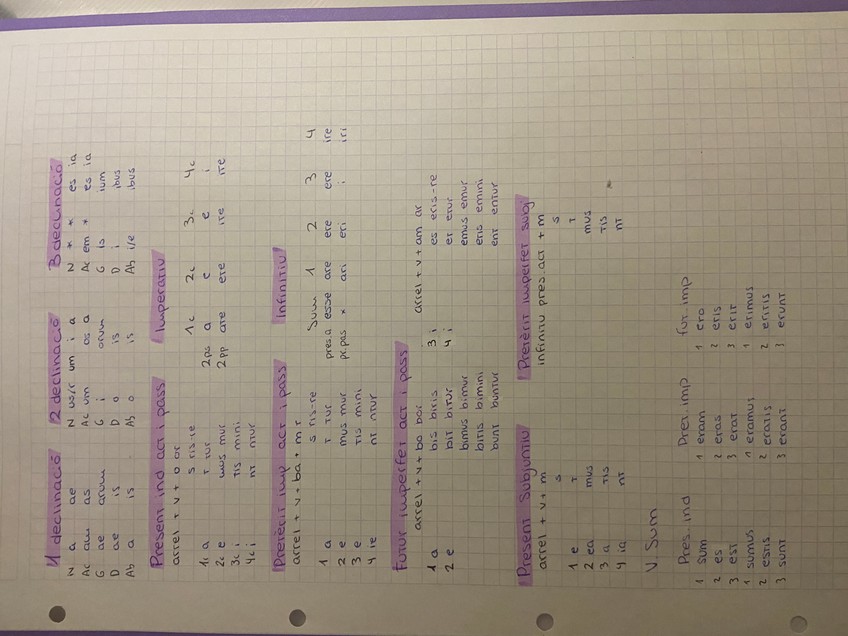 1 declinació 2 declinació 3 declinació
N a ae N us/r um i a N * * es ia
Ac am as Ac um os a Ac em * es ia
G ae arum G i orum G is ium
D ae is D o is D i ibus
Ab a is Ab o is Ab i/e ibus
Present ind act i pass Imperatiu
arrel + v + o or
s ris-re 1c 2c 3c 4c
1c a t tur 2ps a e e i
2c e mus mur 2pp ate ete ite ite
3c i tis mini
4c i nt ntur
Pretèrit imp act i pass Infinitiu
arrel + v + ba + m r
s ris-re Sum 1 2 3 4
1 a t tur pres.a esse are ere ere ire
2 e mus mur pr.pas * ari eri i iri
3 e tis mini
4 ie nt ntur
Futur imperfet act i pass
arrel + v + bo bor arrel + v + am ar
1 a bis biris 3 i es eris-re
2 e bit bitur 4 i et etur
bimus bimur emus emur
bitis bimini etis emini
bunt buntur ent entur
Present Subjuntiu Pretèrit imperfet subj
arrel + v + m infinitiu pres.act + m
s s
1 e t t
2 ea mus mus
3 a tis tis
4 ia nt nt
V. Sum
Pres. ind Pret. imp fut. imp
1 sum 1 eram 1 ero
2 es 2 eras 2 eris
3 est 3 erat 3 erit
1 sumus 1 eramus 1 erimus
2 estis 2 eratis 2 eritis
3 sunt 3 erant 3 erunt